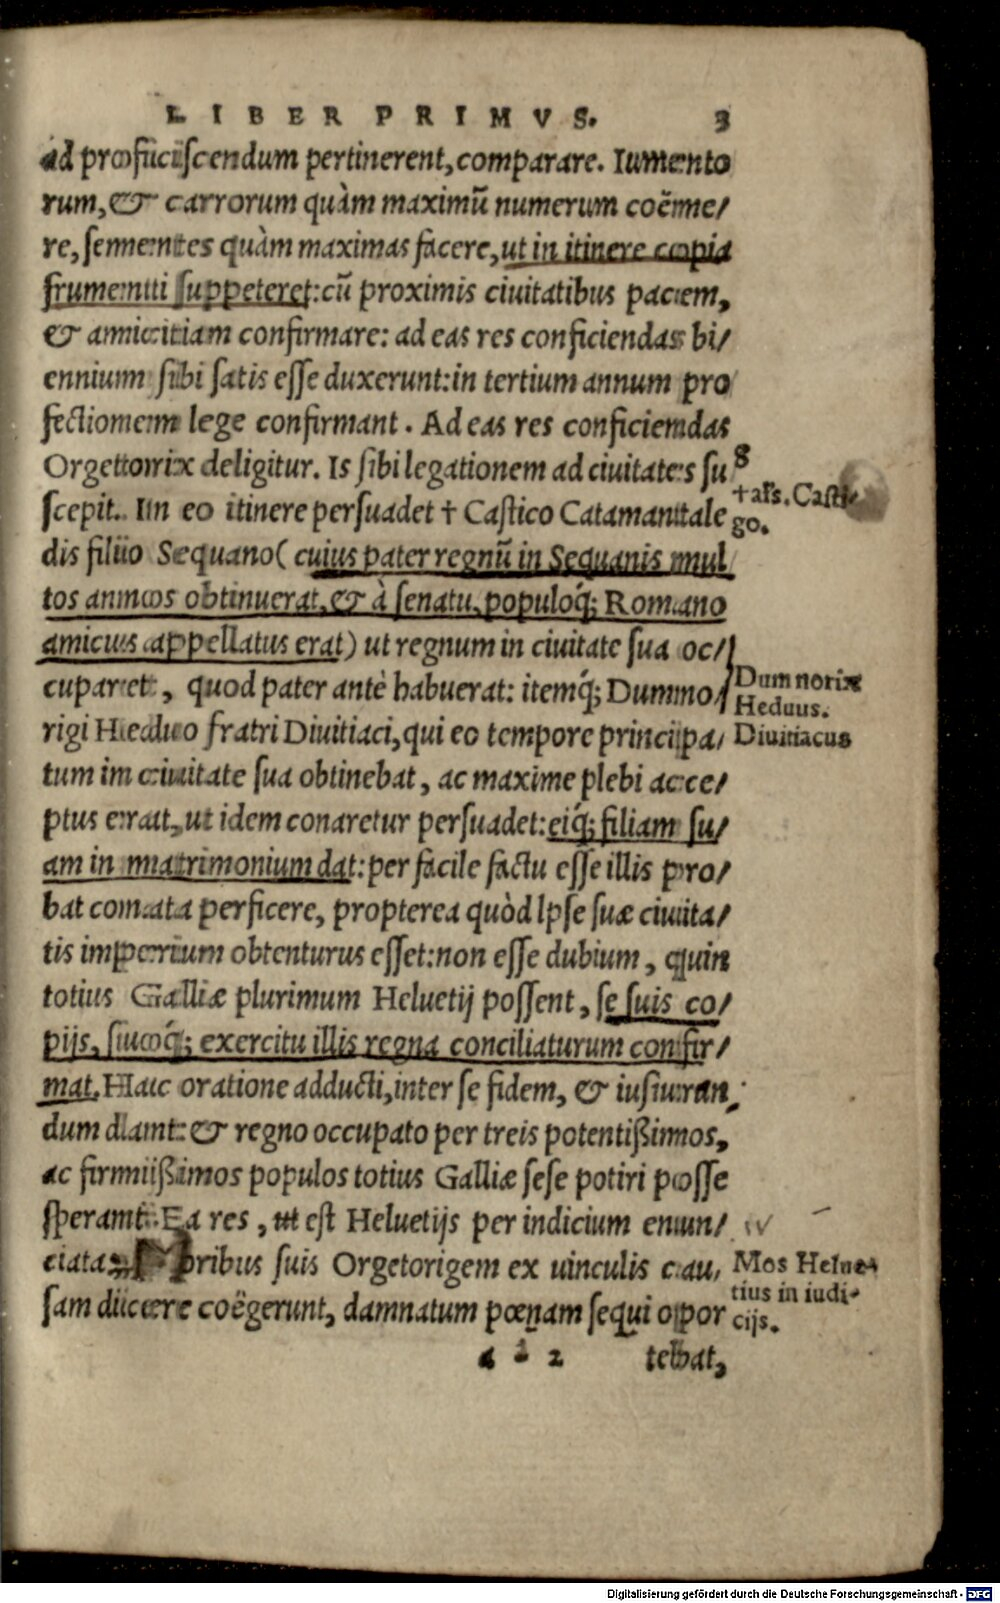 LIBER PRIMVS. 3
ad proficiscendum pertinerent, comparare. Iumento
rum, & carrorum quàm maximũ numerum coëme/
re, sementes quàm maximas facere, ut in itinere copia
frumenti suppeteret: cũ proximis ciuitatibus pacem,
& amicitiam confirmare: ad eas res conficiendas bi/
ennium sibi satis esse duxerunt: in tertium annum pro
fectionem lege confirmant. Ad eas res conficiendas
Orgetorix deligitur. Is sibi legationem ad ciuitates su
scepit. In eo itinere persuadet † Castico Catamantale
dis filio Sequano (cuius pater regnũ in Sequanis mul
tos annos obtinuerat, & à senatu, populoq́; Romano
amicus appellatus erat) ut regnum in ciuitate sua oc/
cuparet, quod pater antè habuerat: itemq́; Dumno/
rigi Heduo fratri Diuitiaci, qui eo tempore principa/
tum in ciuitate sua obtinebat, ac maxime plebi acce/
ptus erat, ut idem conaretur persuadet: eiq́; filiam su/
am in matrimonium dat: per facile factu esse illis pro/
bat conata perficere, propterea quòd Ipse suæ ciuita/
tis imperium obtenturus esset: non esse dubium, quin
totius Galliæ plurimum Heluetij possent, se suis co/
pijs, suoq́; exercitu illis regna conciliaturum confir/
mat. Hac oratione adducti, inter se fidem, & iusiuran
dum dant: & regno occupato per treis potentißimos,
ac firmißimos populos totius Galliæ sese potiri posse
sperant. Ea res, ut est Heluetijs per indicium enun/
ciata; Moribus suis Orgetorigem ex uinculis cau/
sam dicere coëgerunt, damnatum pœnam sequi opor
a 2 tebat,
8
† als. Casti-
go.
Dumnorix
Heduus.
Diuitiacus
Mos Helue-
tius in iudi-
cijs.
Digitalisierung gefördert durch die Deutsche Forschungsgemeinschaft - DFG